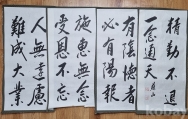 精勤不退
一念通天
有陰德者
必有陽報
施惠無念
受恩不忘
人無遠慮
難成大業
kobay